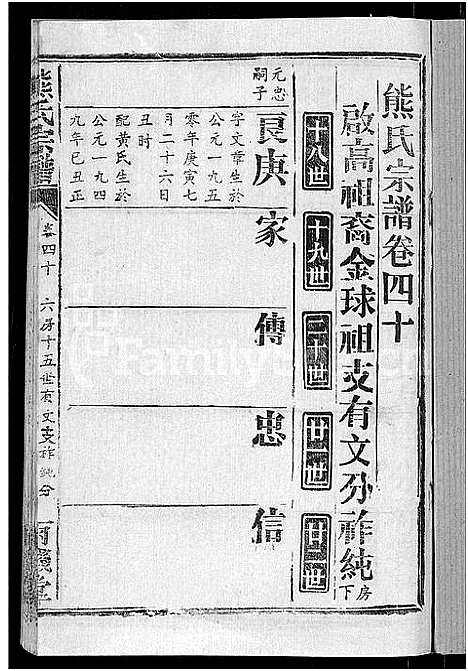 熊氏宗譜卷四十
啟高祖裔金球祖支有文分祚純房下
十八世
十九世
二十世
廿一世
廿二世
良庚
家
傳
忠
信
元忠
嗣子
字文章生於
公元一九五
零年庚寅七
月二十六日
丑時
配黄氏生於
公元一九四
九年己丑正
熊氏宗譜
卷四十
六房十五世有文支祚純分